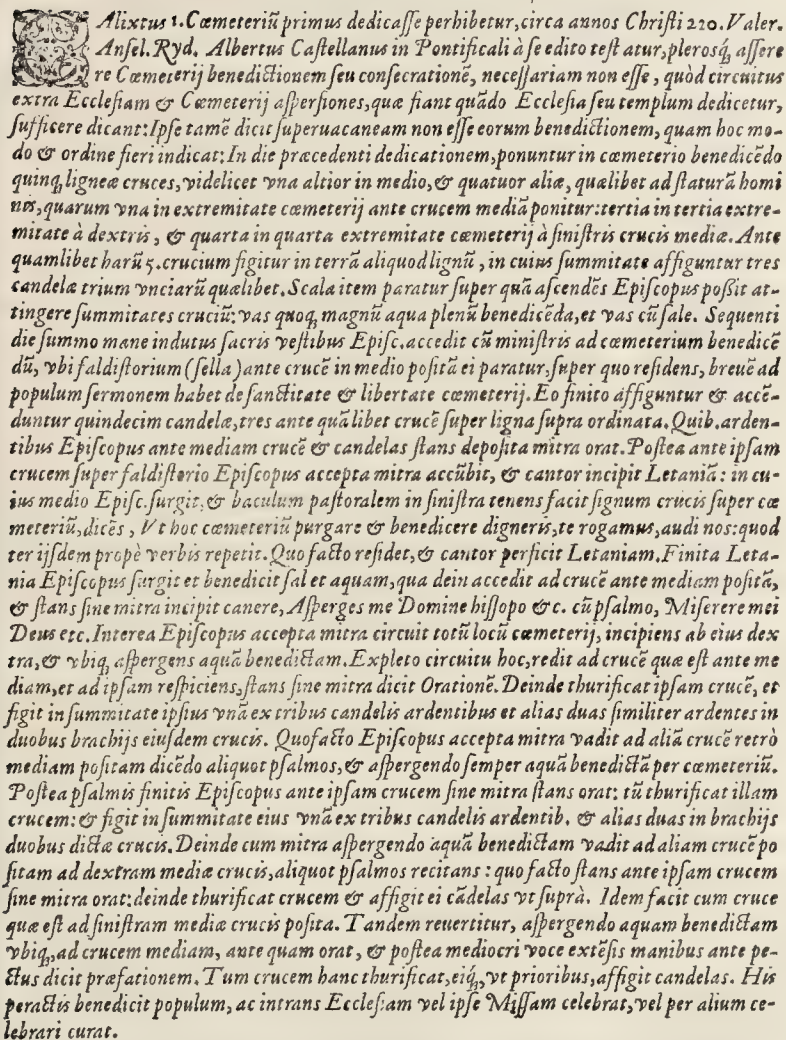 CAlixtus 1. Cœmeteriũ primus dedicaſſe perhibetur, circa annos Chriſti 220. Valer.
Anſel. Ryd. Albertus Caſtellanus in Pontificali à ſe edito teſtatur, pleroſq́; aſſere
re Cœmeterij benedictionem ſeu conſecrationẽ, neceſſariam non eſſe, quòd circuitus
extra Eccleſiam & Cœmeterij aſperſiones, quæ fiant quãdo Eccleſia ſeu templum dedicetur,
ſufficere dicant: Ipſe tamẽ dicit ſuperuacaneam non eſſe eorum benedictionem, quam hoc mo-
do & ordine fieri indicat: In die præcedenti dedicationem, ponuntur in cœmeterio benedicẽdo
quinq; ligneæ cruces, videlicet vna altior in medio, & quatuor aliæ, quælibet ad ſtaturã homi
nis, quarum vna in extremitate cœmeterij ante crucem mediã ponitur: tertia in tertia extre-
mitate à dextris, & quarta in quarta extremitate cœmeterij à ſiniſtris crucis mediæ. Ante
quamlibet harũ 5. crucium figitur in terrã aliquod lignũ, in cuius ſummitate affiguntur tres
candelæ trium vnciarũ quælibet. Scala item paratur ſuper quã aſcendẽs Epiſcopus poßit at-
tingere ſummitates cruciũ: vas quoq; magnũ aqua plenũ benedicẽda, et vas cũ ſale. Sequenti
die ſummo mane indutus ſacris veſtibus Epiſc. accedit cũ miniſtris ad cœmeterium benedicẽ
dũ, vbi faldiſtorium (ſella) ante crucẽ in medio poſitã ei paratur, ſuper quo reſidens, breuẽ ad
populum ſermonem habet de ſanctitate & libertate cœmeterij. Eo finito affiguntur & accẽ-
duntur quindecim candelæ, tres ante quãlibet crucẽ ſuper ligna ſupra ordinata. Quib. arden-
tibus Epiſcopus ante mediam crucẽ & candelas ſtans depoſita mitra orat. Poſtea ante ipſam
crucem ſuper faldiſtorio Epiſcopus accepta mitra accũbit, & cantor incipit Letaniã: in cu-
ius medio Epiſc. ſurgit, & baculum paſtoralem in ſiniſtra tenens facit ſignum crucis ſuper cœ
meteriũ, dicẽs, Vt hoc cœmeteriũ purgare & benedicere digneris, te rogamus, audi nos: quod
ter ijſdem propè verbis repetit. Quo facto reſidet, & cantor perficit Letaniam. Finita Leta-
nia Epiſcopus ſurgit et benedicit ſal et aquam, qua dein accedit ad crucẽ ante mediam poſitã,
& ſtans ſine mitra incipit canere, Aſperges me Domine hiſſopo &c. cũ pſalmo, Miſerere mei
Deus etc. Interea Epiſcopus accepta mitra circuit totũ locũ cœmeterij, incipiens ab eius dex
tra, & vbiq; aſpergens aquã benedictam. Expleto circuitu hoc, redit ad crucẽ quæ eſt ante me
diam, et ad ipſam reſpiciens, ſtans ſine mitra dicit Orationẽ. Deinde thurificat ipſam crucẽ, et
figit in ſummitate ipſius vnã ex tribus candelis ardentibus et alias duas ſimiliter ardentes in
duobus brachijs eiuſdem crucis. Quo facto Epiſcopus accepta mitra vadit ad aliã crucẽ retrò
mediam poſitam dicẽdo aliquot pſalmos, & aſpergendo ſemper aquã benedictã per cœmeteriũ.
Poſtea pſalmis finitis Epiſcopus ante ipſam crucem ſine mitra ſtans orat: tũ thurificat illam
crucem: & figit in ſummitate eius vnã ex tribus candelis ardentib. & alias duas in brachijs
duobus dictæ crucis. Deinde cum mitra aſpergendo aquã benedictam vadit ad aliam crucẽ po
ſitam ad dextram mediæ crucis, aliquot pſalmos recitans: quo facto ſtans ante ipſam crucem
ſine mitra orat: deinde thurificat crucem & affigit ei cãdelas vt ſuprà. Idem facit cum cruce
quæ eſt ad ſiniſtram mediæ crucis poſita. Tandem reuertitur, aſpergendo aquam benedictam
vbiq;, ad crucem mediam, ante quam orat, & poſtea mediocri voce extẽſis manibus ante pe-
ctus dicit præfationem. Tum crucem hanc thurificat, eiq́;, vt prioribus, affigit candelas. His
peractis benedicit populum, ac intrans Eccleſiam vel ipſe Miſſam celebrat, vel per alium ce-
lebrari curat.